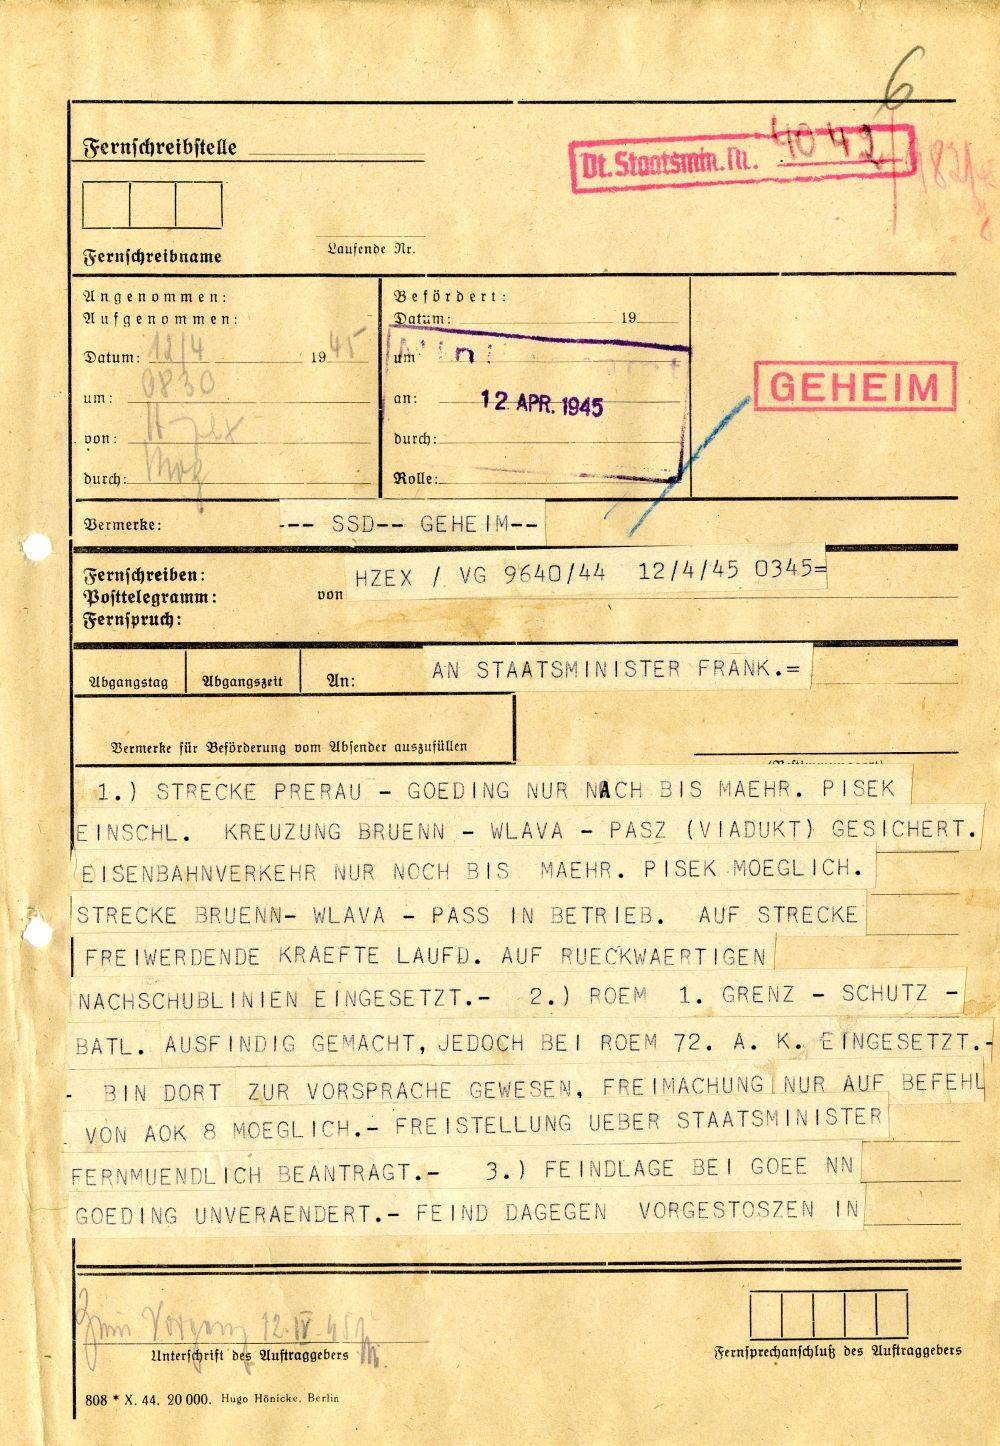 6
Fernschreibstelle
Dt. Staatsmin. Nr. 4042
Fernschreibname
Laufende Nr.
Angenommen:
Aufgenommen:
Datum: 12/4 1945
um: 0830
von:
durch:
Befördert:
Datum: 19
um
an:
durch:
Rolle:
12. APR. 1945
GEHEIM
Vermerke:
--- SSD-- GEHEIM--
Fernschreiben:
Posttelegramm:
Fernspruch:
von
HZEX / VG 9640/44 12/4/45 0345=
Abgangstag
Abgangszeit
An:
AN STAATSMINISTER FRANK.=
Vermerke für Beförderung vom Absender auszufüllen
1.) STRECKE PRERAU - GOEDING NUR NACH BIS MAEHR. PISEK
EINSCHL. KREUZUNG BRUENN - WLAVA - PASZ (VIADUKT) GESICHERT.
EISENBAHNVERKEHR NUR NOCH BIS MAEHR. PISEK MOEGLICH.
STRECKE BRUENN- WLAVA - PASS IN BETRIEB. AUF STRECKE
FREIWERDENDE KRAEFTE LAUFD. AUF RUECKWAERTIGEN
NACHSCHUBLINIEN EINGESETZT.- 2.) ROEM 1. GRENZ - SCHUTZ -
BATL. AUSFINDIG GEMACHT, JEDOCH BEI ROEM 72. A. K. EINGESETZT.-
- BIN DORT ZUR VORSPRACHE GEWESEN, FREIMACHUNG NUR AUF BEFEHL
VON AOK 8 MOEGLICH.- FREISTELLUNG UEBER STAATSMINISTER
FERNMUENDLICH BEANTRAGT.- 3.) FEINDLAGE BEI GOEE NN
GOEDING UNVERAENDERT.- FEIND DAGEGEN VORGESTOSZEN IN
Zum Vorgang 12.IV.45
Unterschrift des Auftraggebers
Fernsprechanschluß des Auftraggebers
808 * X. 44. 20 000. Hugo Hönicke, Berlin